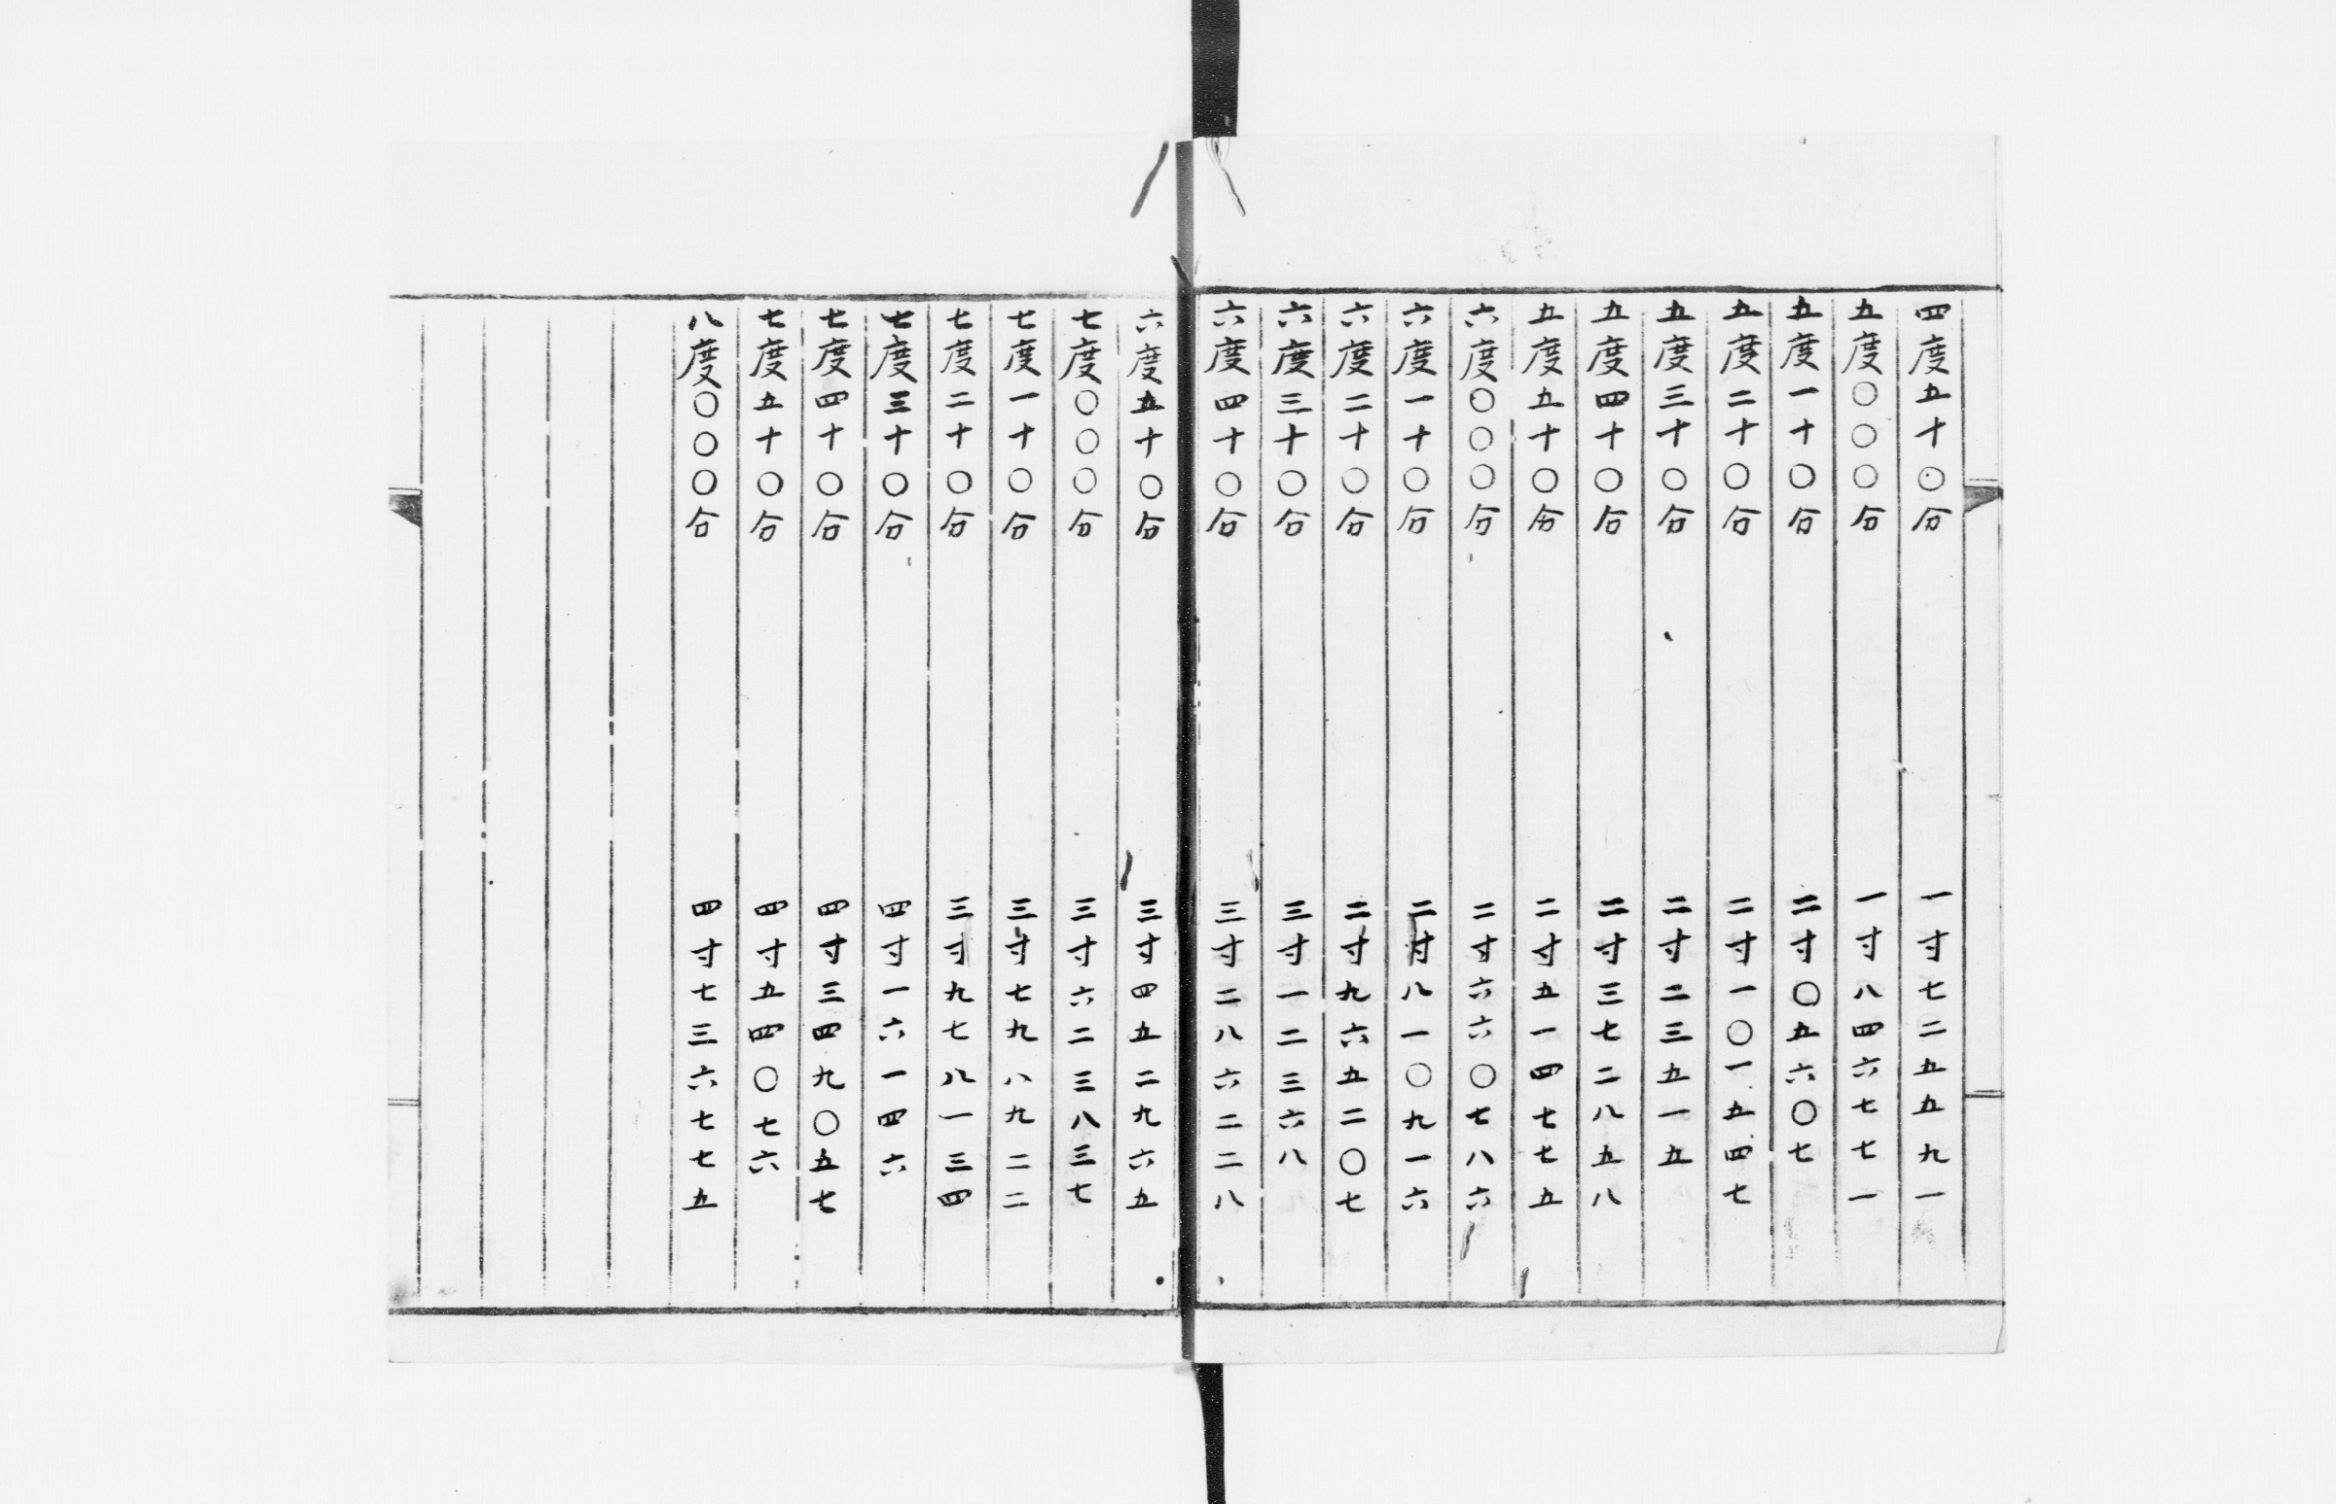 四度五十〇分 一寸七二五五九一
五度〇〇〇分 一寸八四六七七一
五度一十〇分 二寸〇五六〇七
五度二十〇分 二寸一〇一五四七
五度三十〇分 二寸二三五一五
五度四十〇分 二寸三七二八五八
五度五十〇分 二寸五一四七七五
六度〇〇〇分 二寸六六〇七八六
六度一十〇分 二寸八一〇九一六
六度二十〇分 二寸九六五二〇七
六度三十〇分 三寸一二三六八
六度四十〇分 三寸二八六二二八
六度五十〇分 三寸四五二九六五
七度〇〇〇分 三寸六二三八三七
七度一十〇分 三寸七九八九二二
七度二十〇分 三寸九七八一三四
七度三十〇分 四寸一六一四六
七度四十〇分 四寸三四九〇五七
七度五十〇分 四寸五四〇七六
八度〇〇〇分 四寸七三六七七五